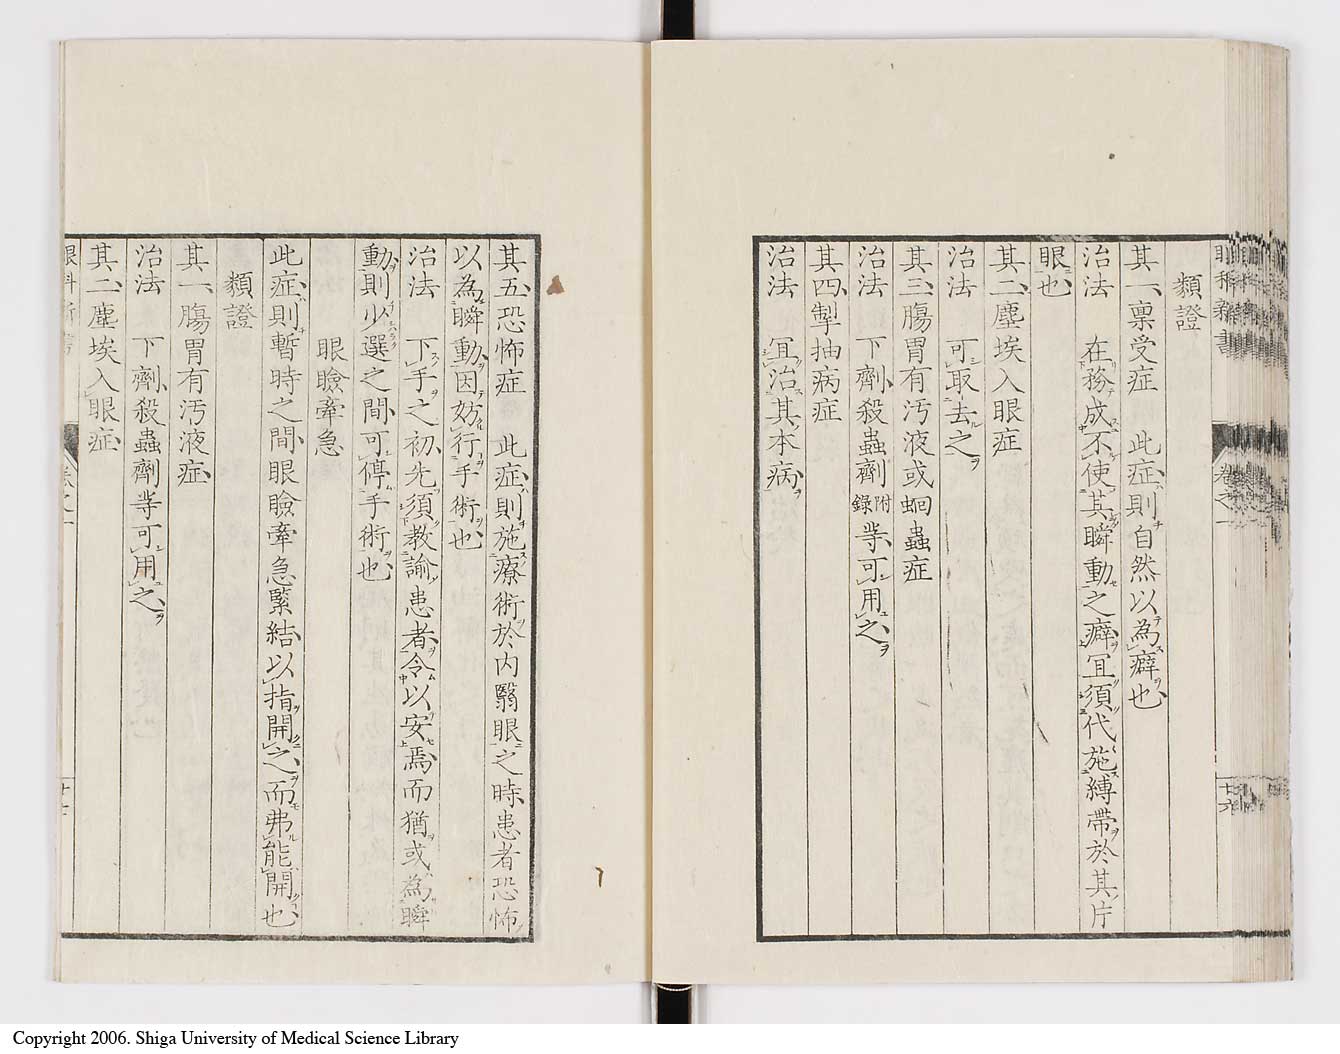 類證
其一、稟受症　此症、則自然以為癖也、
治法　在務成不使其瞬動之癖、冝須代施縛帶於其片
眼也、
其二、塵埃入眼症
治法　可取去之、
其三、腸胃有汚液或蛔蟲症
治法　下劑、殺蟲劑附錄等可用之、
其四、掣抽病症
治法　冝治其本病、
卷之一
十六
其五、恐怖症　此症、則施療術於内翳眼之時、患者恐怖
以為瞬動、因妨行手術也、
治法　下手之初、先須教諭患者、令以安焉、而猶或為瞬
動、則少選之間、可停手術也、
眼瞼牽急
此症、則暫時之間、眼瞼牽急緊結、以指開之、而弗能開也、
類證
其一、腸胃有汚液症、
治法　下劑、殺蟲劑等可用之、
其二、塵埃入眼症、
Copyright 2006. Shiga University of Medical Science Library